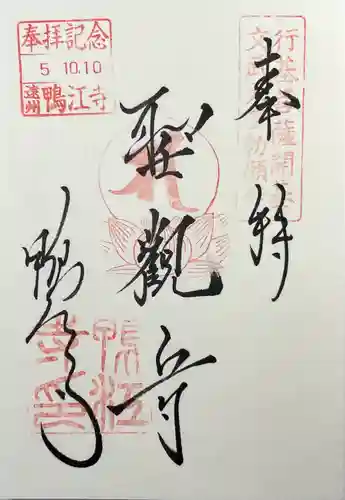 奉拝
行基菩薩開基
文武天皇勅願
聖観音
鴨江寺
奉拝記念
5 10.10
遠州 鴨江寺
鴨江
寺印